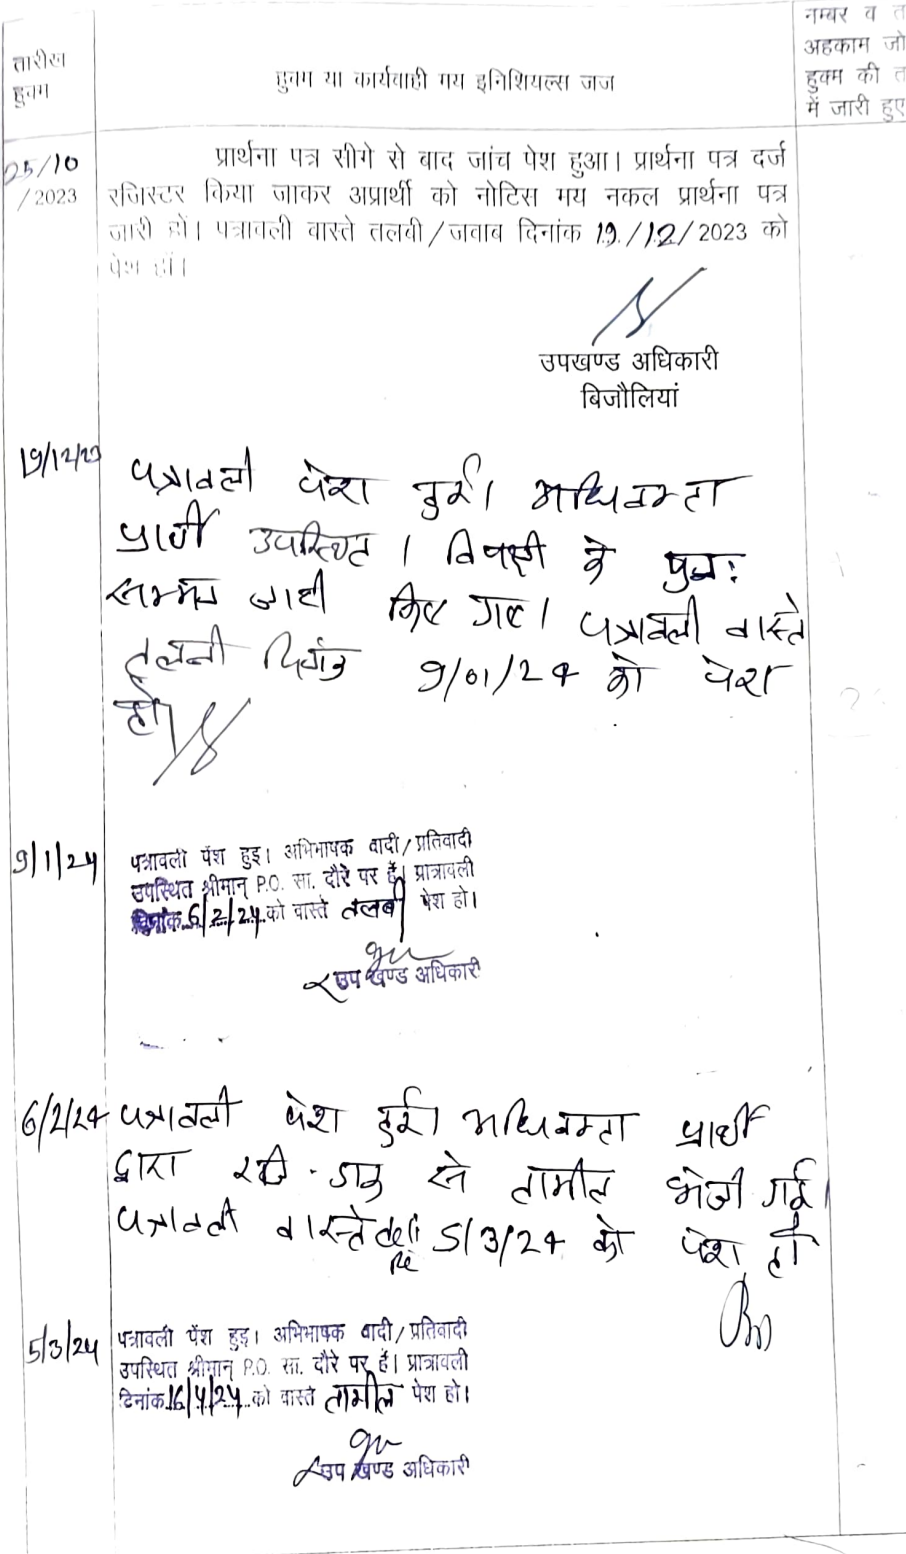 तारीख
हुक्म
हुक्म या कार्यवाही मय इनिशियल्स जज
नम्बर व त
अहकाम जो
हुक्म की त
में जारी हुए
25/10
/2023
प्रार्थना पत्र सीगे से बाद जांच पेश हुआ। प्रार्थना पत्र दर्ज
रजिस्टर किया जाकर अप्रार्थी को नोटिस मय नकल प्रार्थना पत्र
जारी हों। पत्रावली वास्ते तलबी/जवाब दिनांक 19./12/2023 को
पेश हों।
उपखण्ड अधिकारी
बिजौलियां
19/12/23
पत्रावली पेश हुई। अधिवक्ता
प्रार्थी उपस्थित। विपक्षी के पुनः
सम्मन जारी किए गए। पत्रावली वास्ते
तलबी दिनांक 9/01/24 को पेश
हो।
9/1/24
पत्रावली पेश हुइ। अभिभाषक वादी/प्रतिवादी
उपस्थित श्रीमान् P.O. सा. दौरे पर हैं। प्रात्रावली
दिनांक 6/2/24 को वास्ते तलबी पेश हो।
उप खण्ड अधिकारी
6/2/24
पत्रावली पेश हुई। अधिवक्ता प्रार्थी
द्वारा रजि. डाक से तामील भेजी गई।
पत्रावली वास्ते 5/3/24 को पेश हो
5/3/24
पत्रावली पेंश हुइ। अभिभाषक वादी/प्रतिवादी
उपस्थित श्रीमान् P.O. सा. दौरे पर हैं। प्रात्रावली
दिनांक 16/4/24 को वास्ते तामील पेश हो।
उप खण्ड अधिकारी